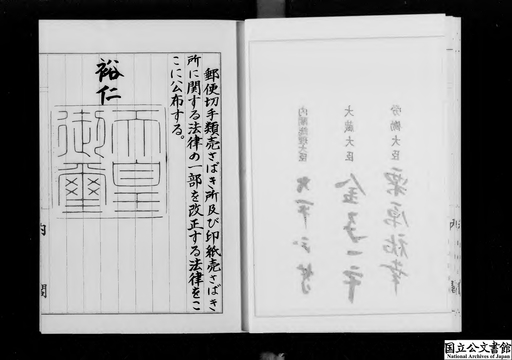 郵便切手類売さばき所及び印紙売さばき
所に関する法律の一部を改正する法律をこ
こに公布する。
裕仁
天皇
御璽
内閣
労働大臣
大蔵大臣
金子一平
国立公文書館
National Archives of Japan